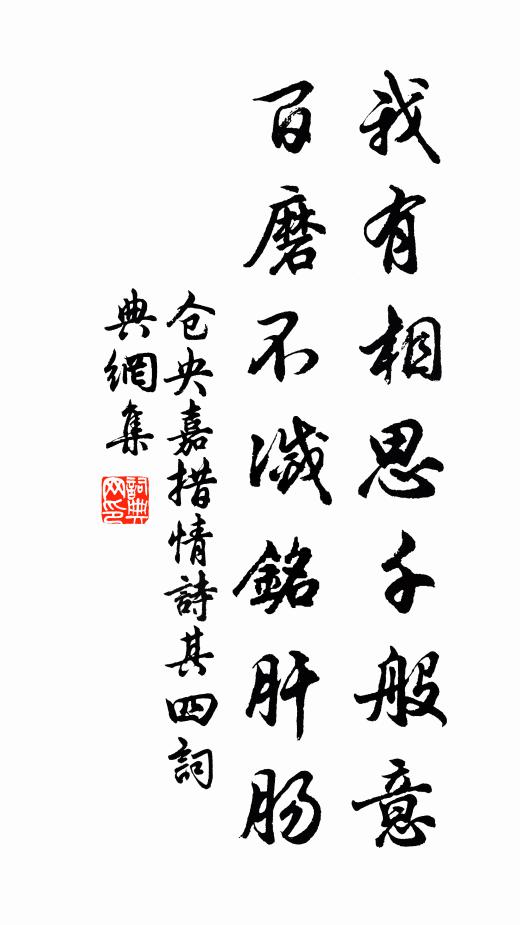 我有相思千般意
百磨不滅銘肝肠
仓央嘉措情詩其四詞
典網集
詞典网印